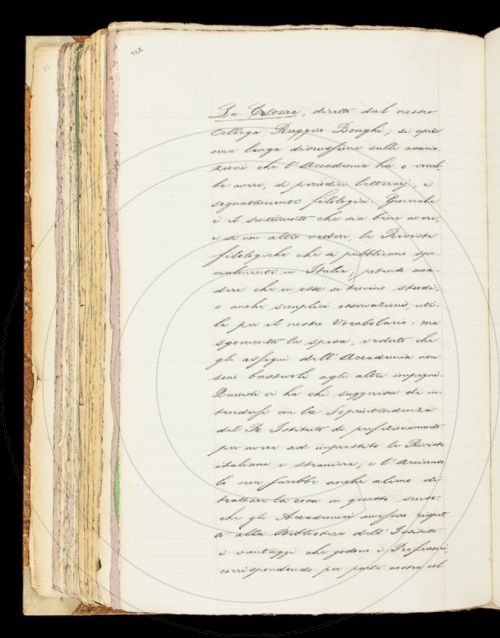 La Coltura, diretta dal nostro
Collega Ruggiro Bonghi; si aprì
una lunga discussione sulle associa-
zioni che l'Accademia ha o vorreb-
be avere, di periodici letterarj, e
segnatamente filologici. Generale
è il sentimento che sia bene avere,
o in un altro vedere, le Riviste
filologiche che si pubblicano spe-
cialmente in Italia; potendo acca-
dere che in esse si trovino studi,
o anche semplici osservazioni, uti-
li per il nostro Vocabolario: ma
sgomenta la spesa, veduto che
gli assegni dell'Accademia non
sono bastevoli agli altri impegni.
Quindi vi ha chi suggerisce di in-
tendersi con la Soprintendenza
del R. Istituto di perfezionamento
per avere ad imprestito le Riviste
italiane e straniere; e l'Arciconsolo
la cosa in questo senso,
che gli Accademici avessero rispet-
to alla Biblioteca dell'Istituto
i vantaggi che godono i Professori,
corrispondendo per parte nostra col